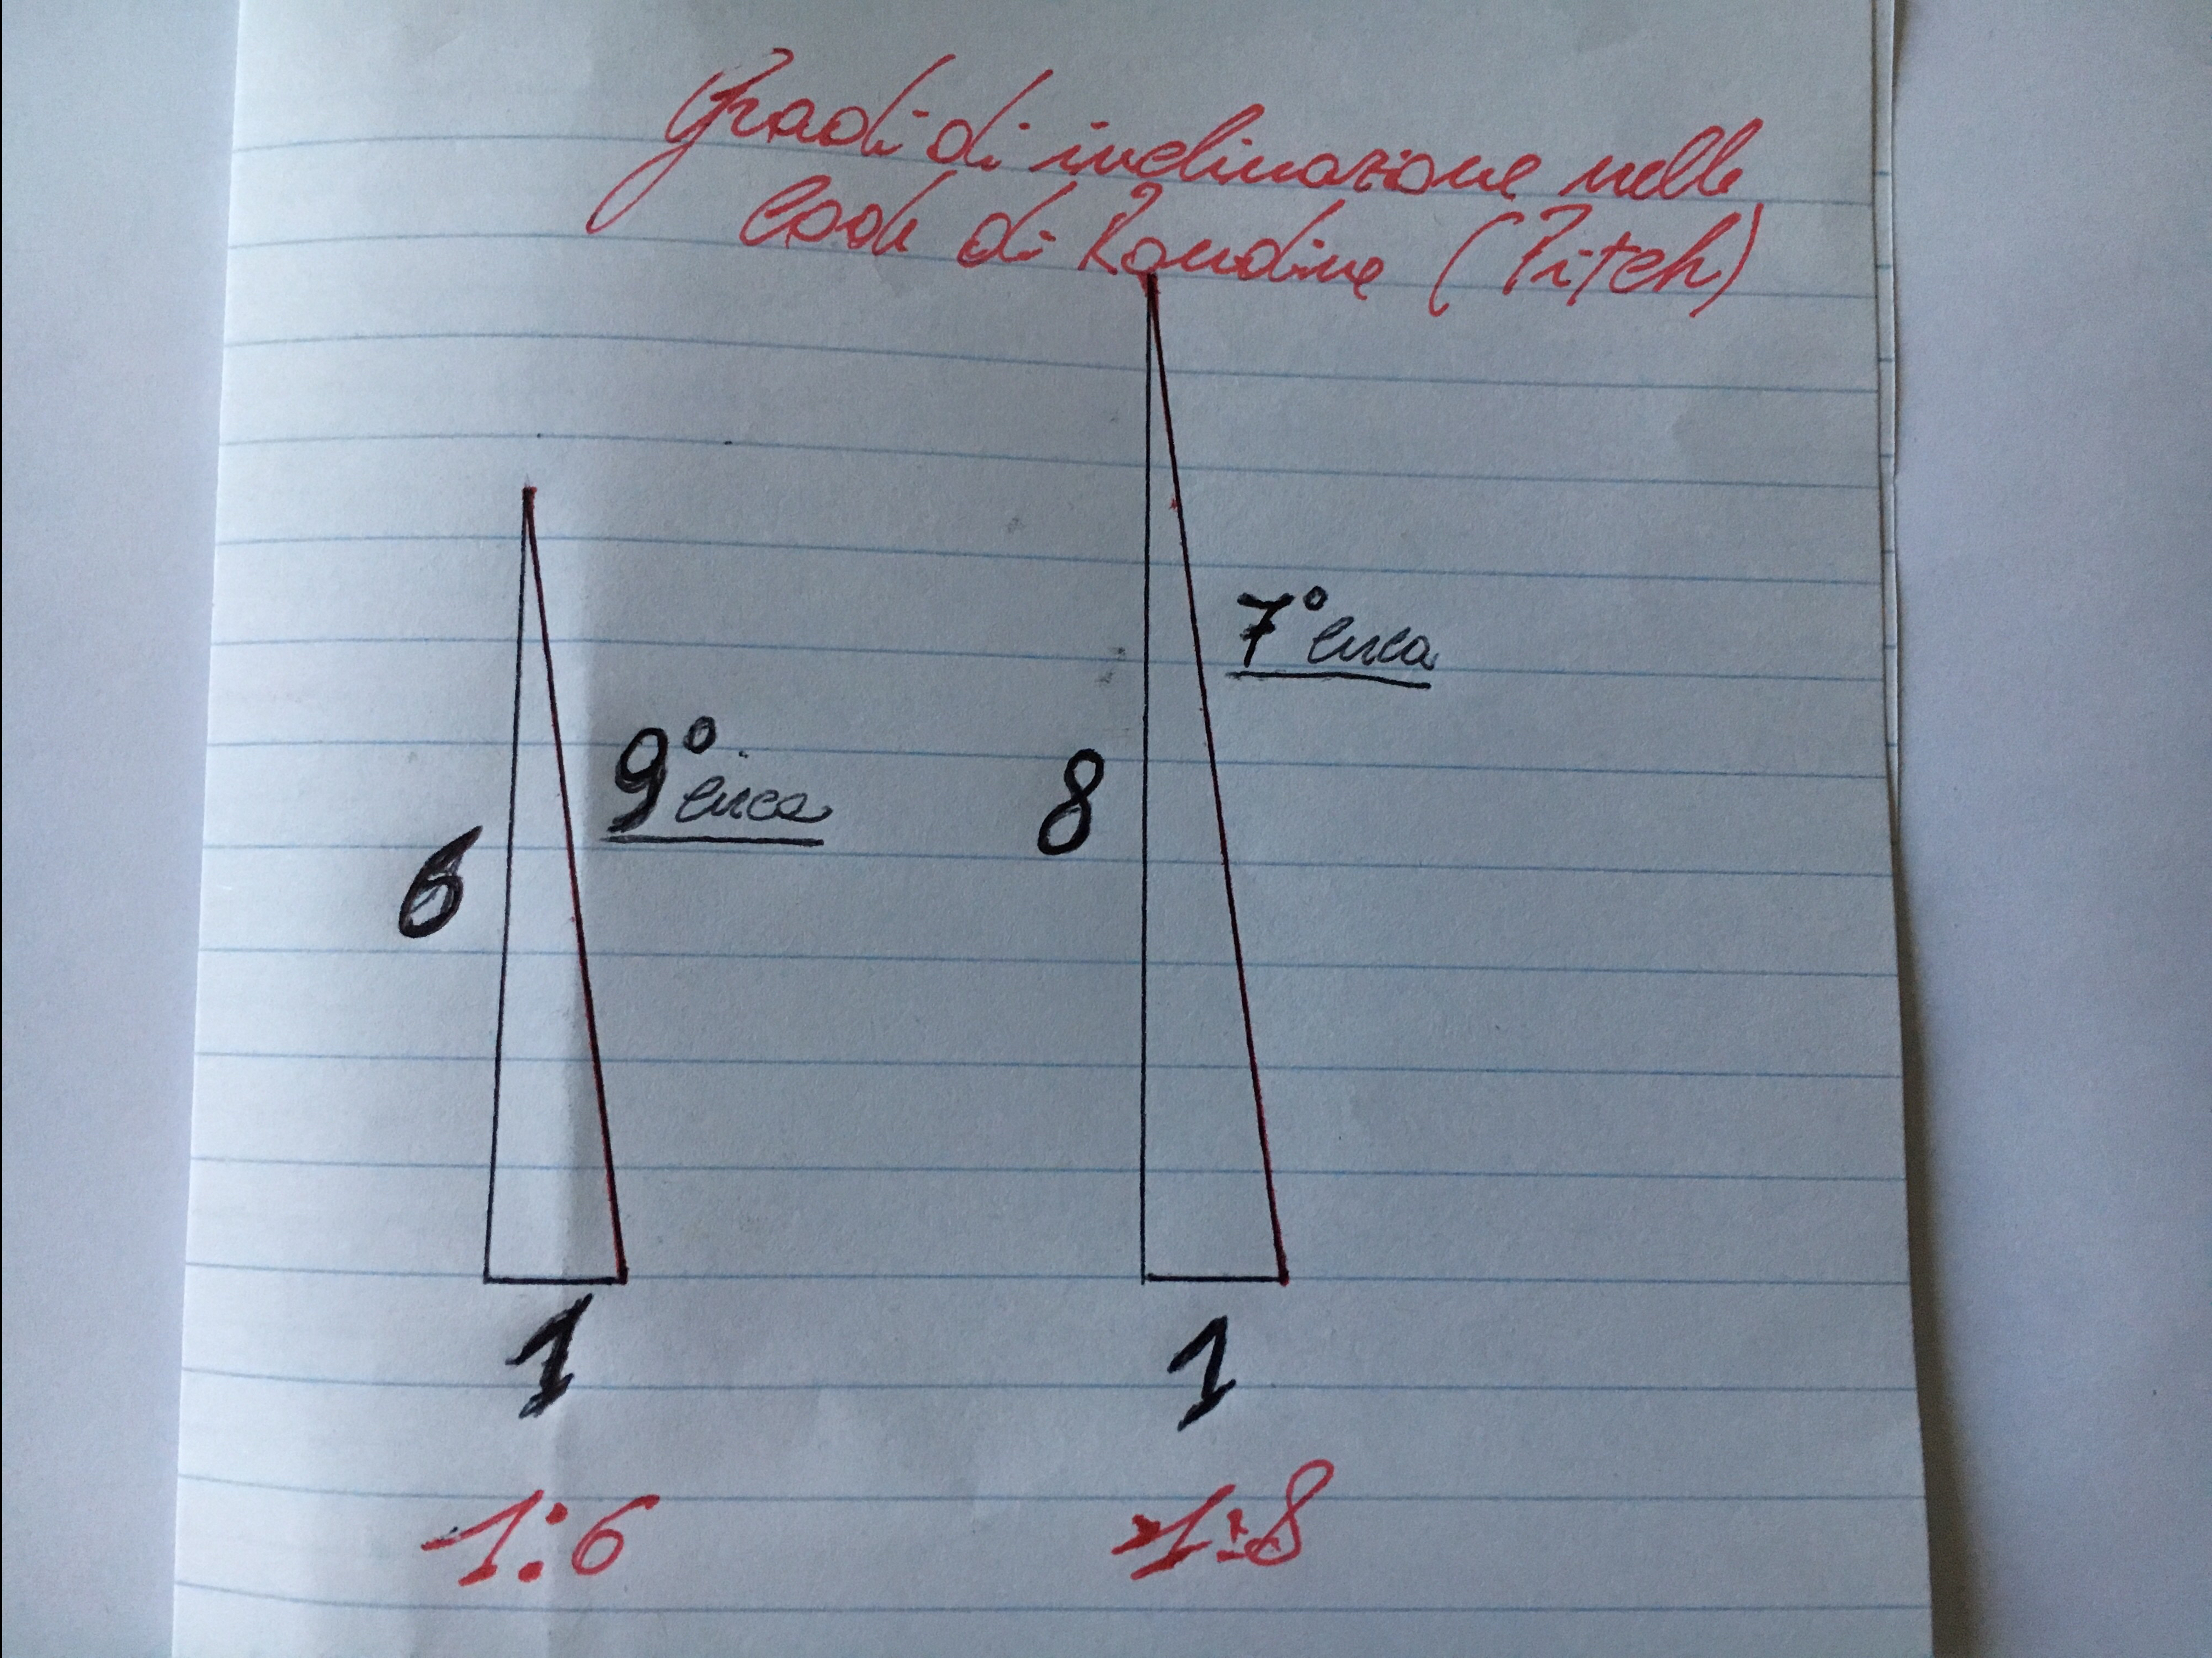 Gradi di inclinazione nelle
Code di Rondine (Pitch)
7° circa
9° circa
8
6
1
1
1:6
1:8